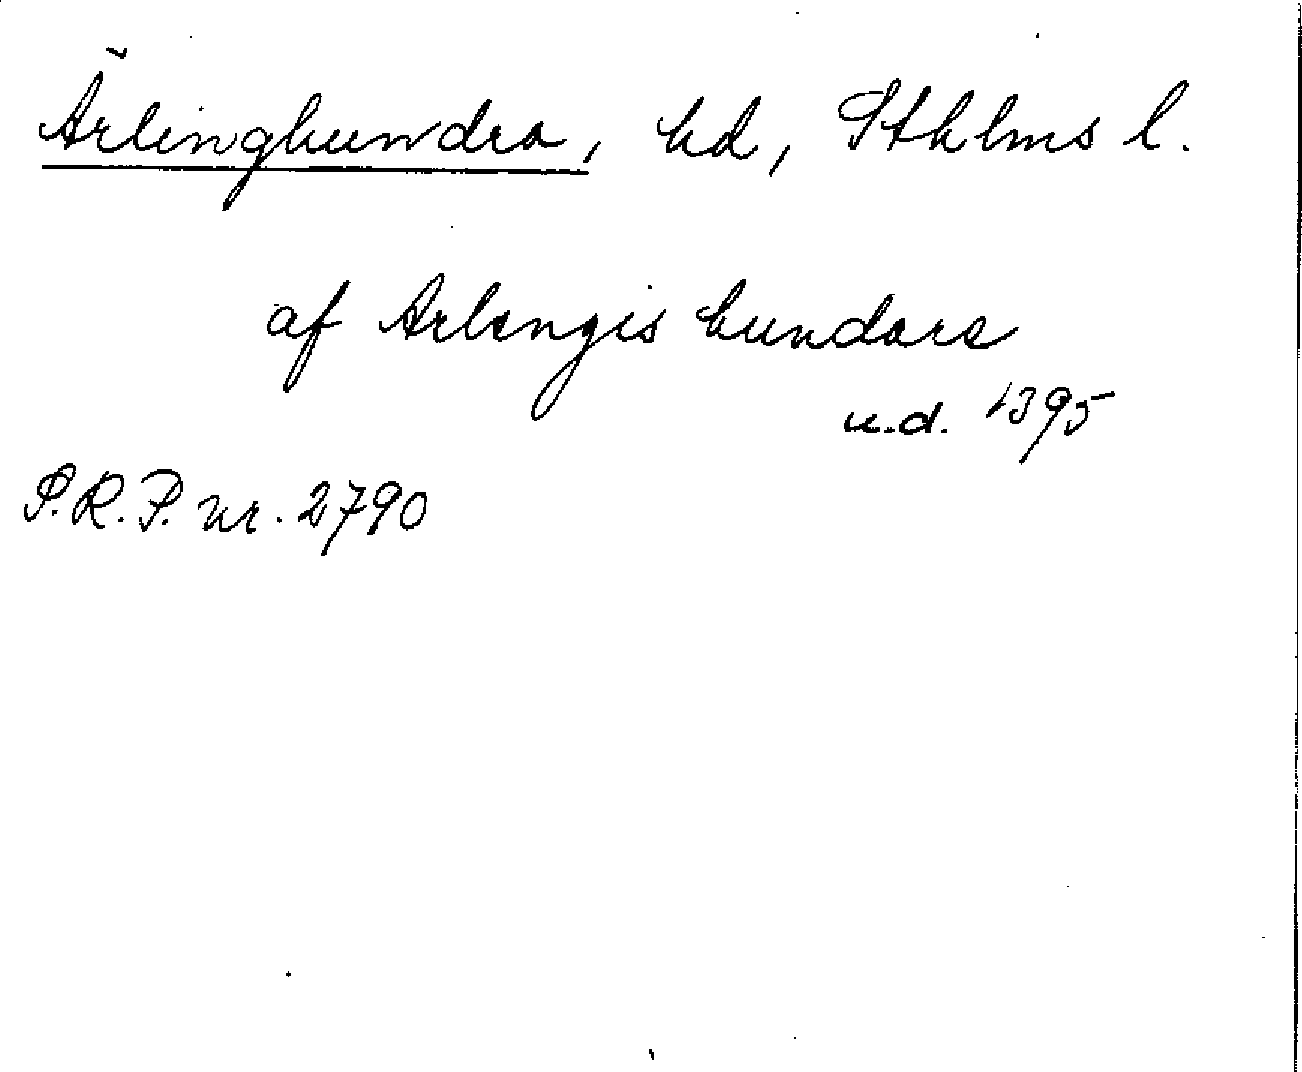 Ärlinghundra, hd, Sthlms l.
af Arlengis hundare
u.d. 1395
P.R.P. nr. 2790